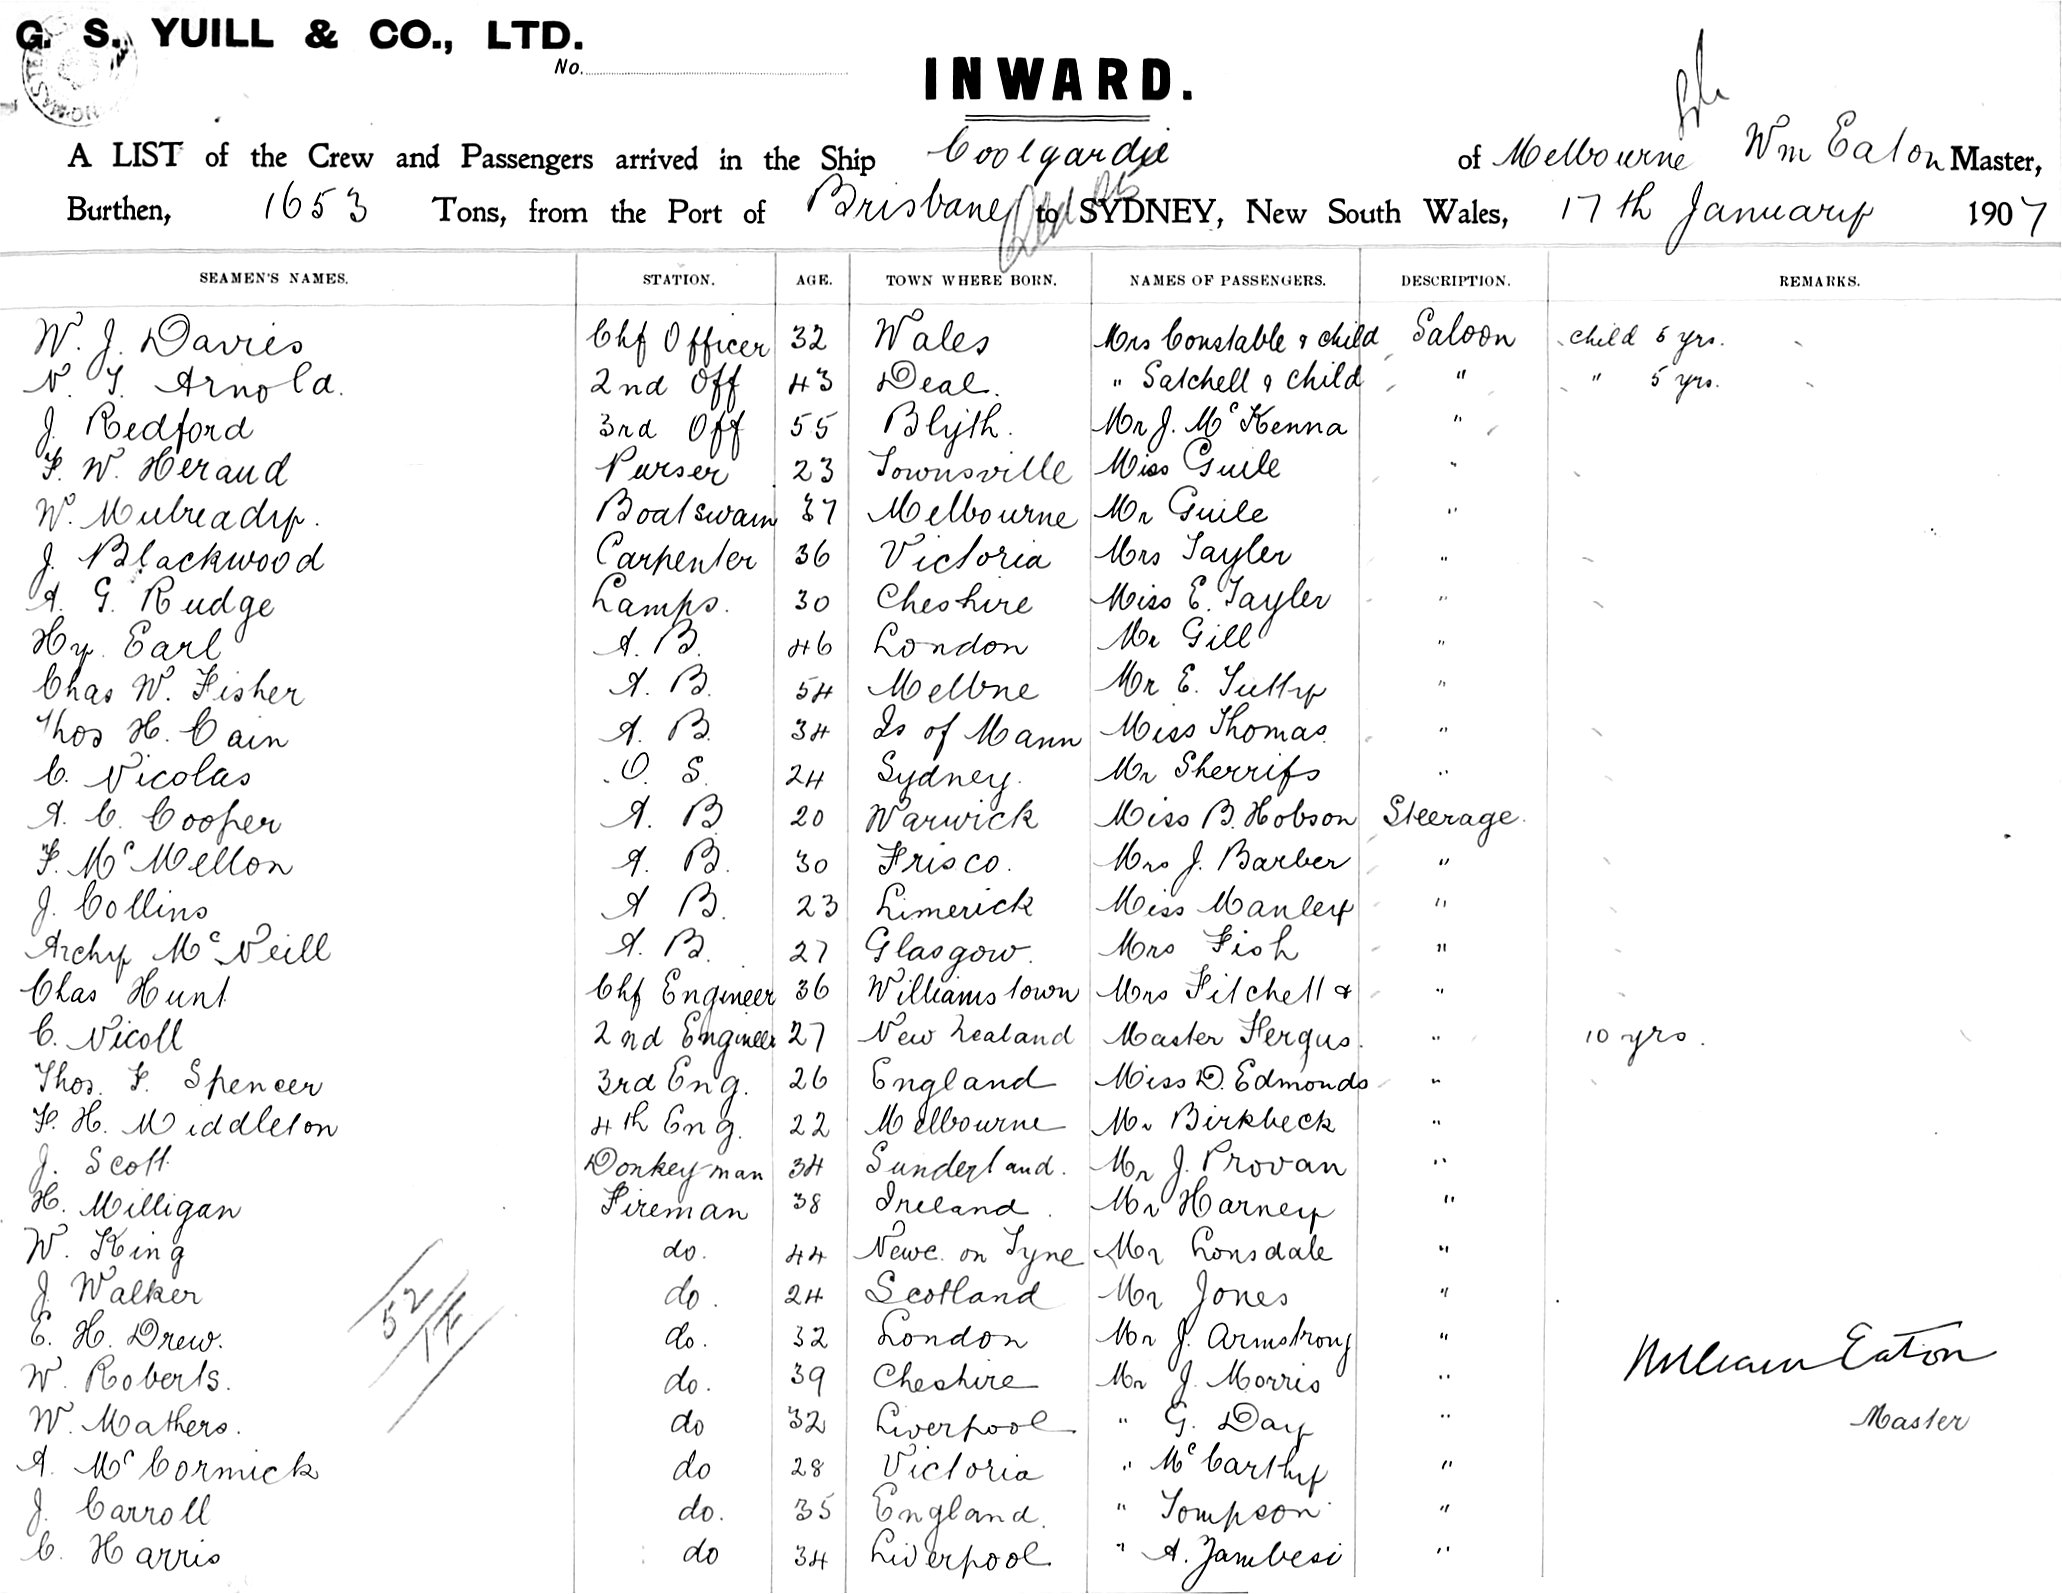 G. S. YUILL & CO., LTD.
No.
INWARD.
A LIST of the Crew and Passengers arrived in the Ship Coolgardie of Melbourne Wm Eaton Master,
Burthen, 1653 Tons, from the Port of Brisbane to SYDNEY, New South Wales, 17th January 1907
SEAMEN'S NAMES. STATION. AGE. TOWN WHERE BORN. NAMES OF PASSENGERS. DESCRIPTION. REMARKS.
W. J. Davies Chf Officer 32 Wales Mrs Constable & child Saloon child 5 yrs.
N. T. Arnold. 2nd Off 43 Deal. " Satchell & child " " 5 yrs.
J. Redford 3rd Off 55 Blyth. Mr J. McKenna "
F. W. Heraud Purser 23 Townsville Miss Guile "
W. Mulready. Boatswain 37 Melbourne Mr Guile "
J. Blackwood Carpenter 36 Victoria Mrs Tayler "
A. G. Rudge Lamps. 30 Cheshire Miss E. Tayler "
Hy. Earl A. B. 46 London Mr Gill "
Chas W. Fisher A. B. 54 Melbne Mr E. Tutty "
Thos H. Cain A. B. 34 Is of Mann Miss Thomas "
C. Nicolas O. S. 24 Sydney. Mr Sherrifs "
A. C. Cooper A. B 20 Warwick Miss B. Hobson Steerage.
F. McMellon A. B. 30 Frisco. Mrs J. Barber "
J. Collins A B. 23 Limerick Miss Manley "
Archy McNeill A. B. 27 Glasgow. Mrs Fish "
Chas Hunt Chf Engineer 36 Williamstown Mrs Fitchett & "
C. Nicoll 2nd Engineer 27 New Zealand Master Fergus. " 10 yrs.
Thos. F. Spencer 3rd Eng. 26 England Miss D. Edmonds "
F. H. Middleton 4th Eng. 22 Melbourne Mr Birkbeck "
J. Scott Donkeyman 34 Sunderland. Mr J. Provan "
H. Milligan Fireman 38 Ireland. Mr Harney "
W. King do. 44 Newc. on Tyne Mr Lonsdale "
J. Walker do. 24 Scotland Mr Jones "
E. H. Drew. do. 32 London Mr J. Armstrong "
W. Roberts. do. 39 Cheshire Mr J. Morris "
William Eaton
W. Mathers. do 32 Liverpool " G. Day " Master
A. McCormick do 28 Victoria " McCarthy "
J. Carroll do. 35 England. " Tompson "
C. Harris do 34 Liverpool " A. Zambesi "
52/14